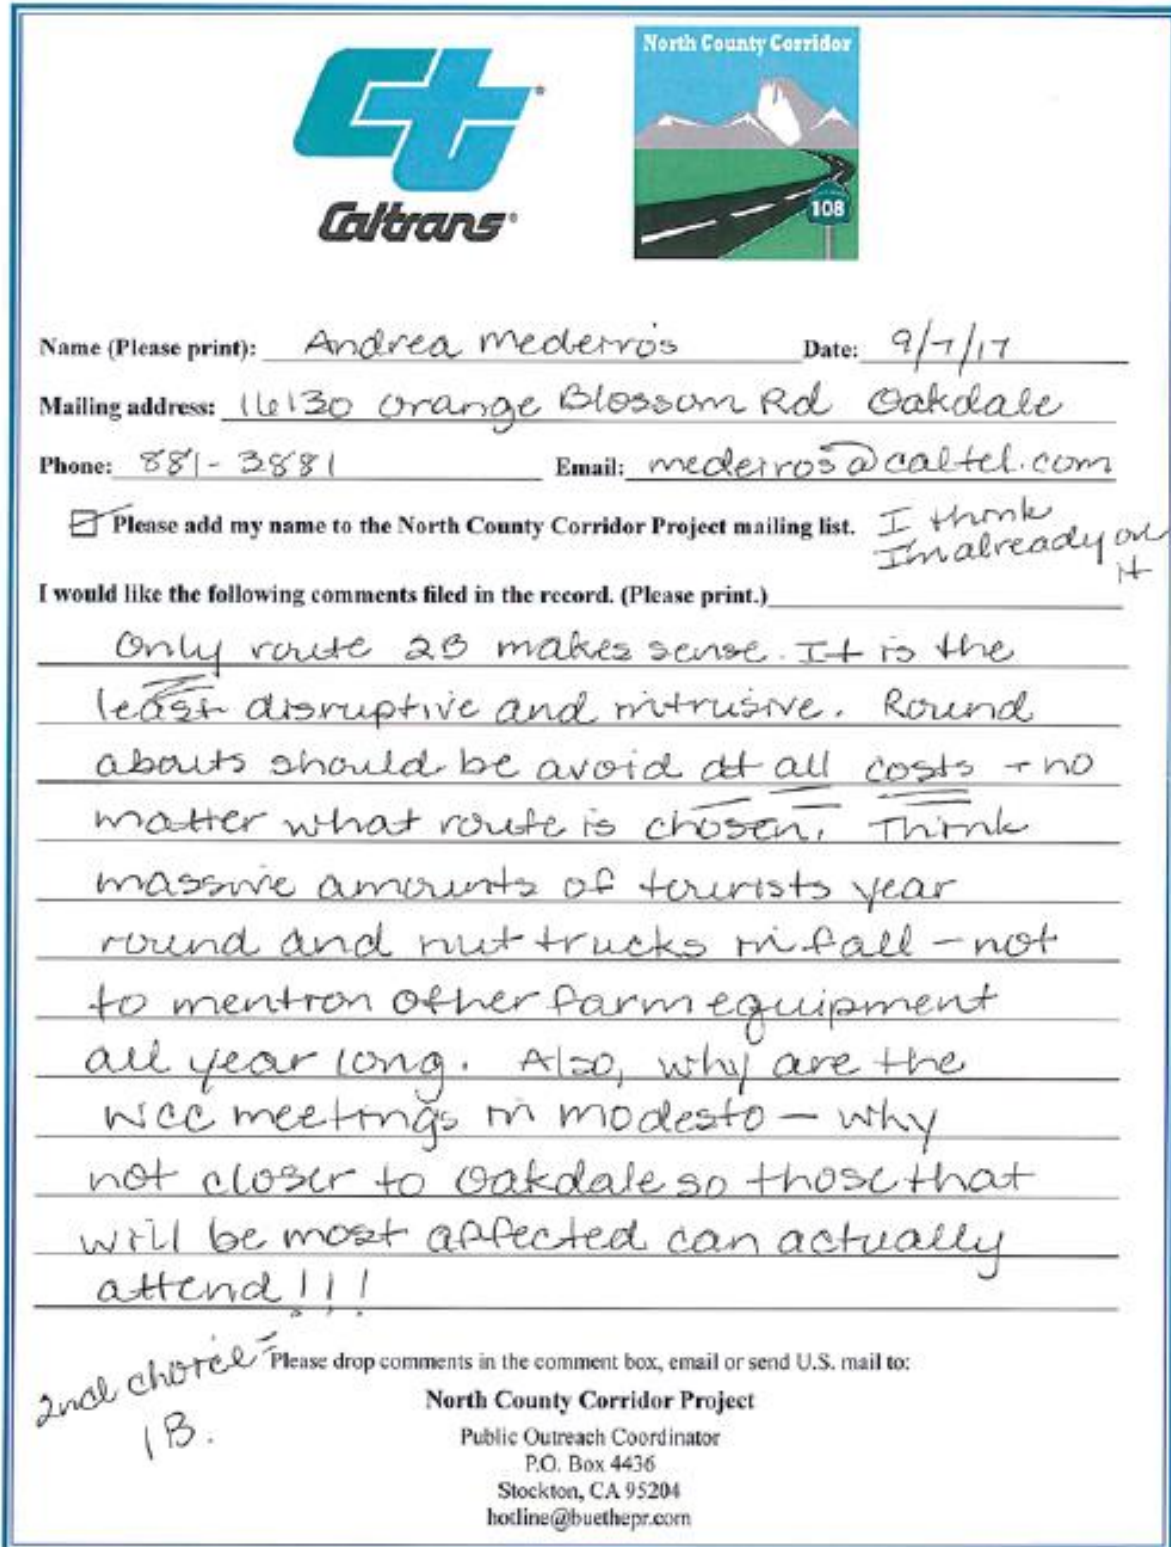 Ct
Caltrans
North County Corridor
108
Name (Please print): Andrea Medeiros Date: 9/7/17
Mailing address: 16130 Orange Blossom Rd Oakdale
Phone: 881-3881 Email: medeiros@caltel.com
Please add my name to the North County Corridor Project mailing list. I think
Im already on
it
I would like the following comments filed in the record. (Please print.)
Only route 2B makes sense. It is the
least disruptive and intrusive. Round
abouts should be avoid at all costs - no
matter what route is chosen. Think
massive amounts of tourists year
round and nut trucks in fall - not
to mention other farm equipment
all year long. Also, why are the
NCC meetings in Modesto - why
not closer to Oakdale so those that
will be most affected can actually
attend!!!
2nd choice =
1B.
Please drop comments in the comment box, email or send U.S. mail to:
North County Corridor Project
Public Outreach Coordinator
P.O. Box 4436
Stockton, CA 95204
hotline@buethepr.com